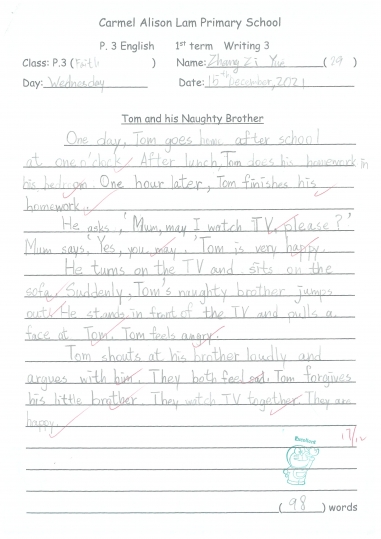 Carmel Alison Lam Primary School
P. 3 English 1st term Writing 3
Class: P.3 (Faith) Name: Zhang Zi Yue (29)
Day: Wednesday Date: 15th December, 2021
Tom and his Naughty Brother
One day, Tom goes home after school
at one o'clock. After lunch, Tom does his homework in
his bedroom. One hour later, Tom finishes his
homework.
He asks, 'Mum, may I watch TV, please?'
Mum says, 'Yes, you may.' Tom is very happy.
He turns on the TV and sits on the
sofa. Suddenly, Tom's naughty brother jumps
out! He stands in front of the TV and pulls a
face at Tom. Tom feels angry.
Tom shouts at his brother loudly and
argues with him. They both feel sad. Tom forgives
his little brother. They watch TV together. They are
happy.
12/12
(98) words